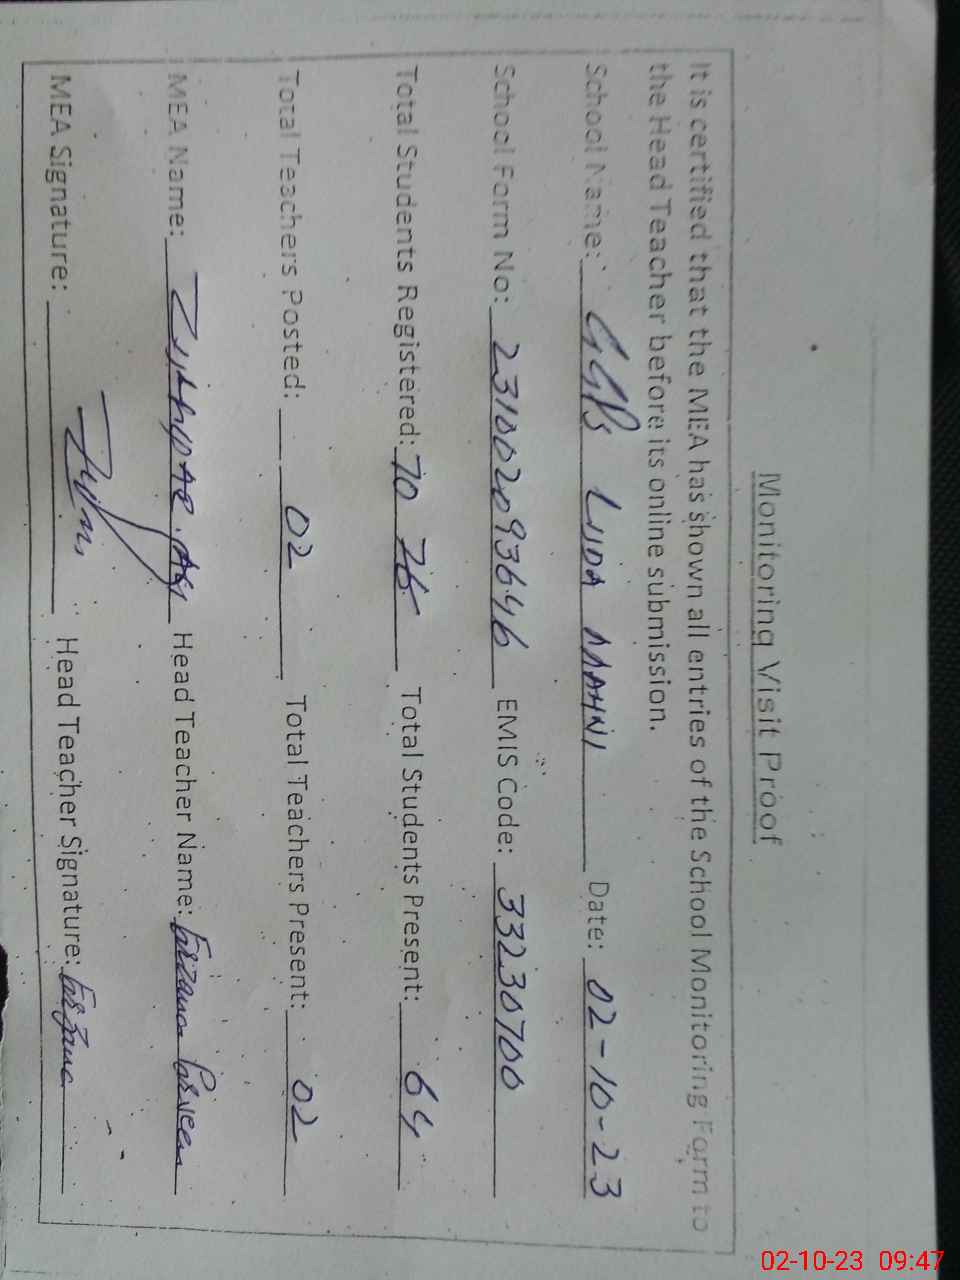 Monitoring Visit Proof
It is certified that the MEA has shown all entries of the School Monitoring Form to
the Head Teacher before its online submission.
School Name: GGPS Date: 02-10-23
School Form No: 231002093646 EMIS Code: 33230700
Total Students Registered: 70 76 Total Students Present: 64
Total Teachers Posted: 02 Total Teachers Present: 02
MEA Name: Head Teacher Name: Farzana Parveen
MEA Signature: Head Teacher Signature: Farzana
02-10-23 09:47